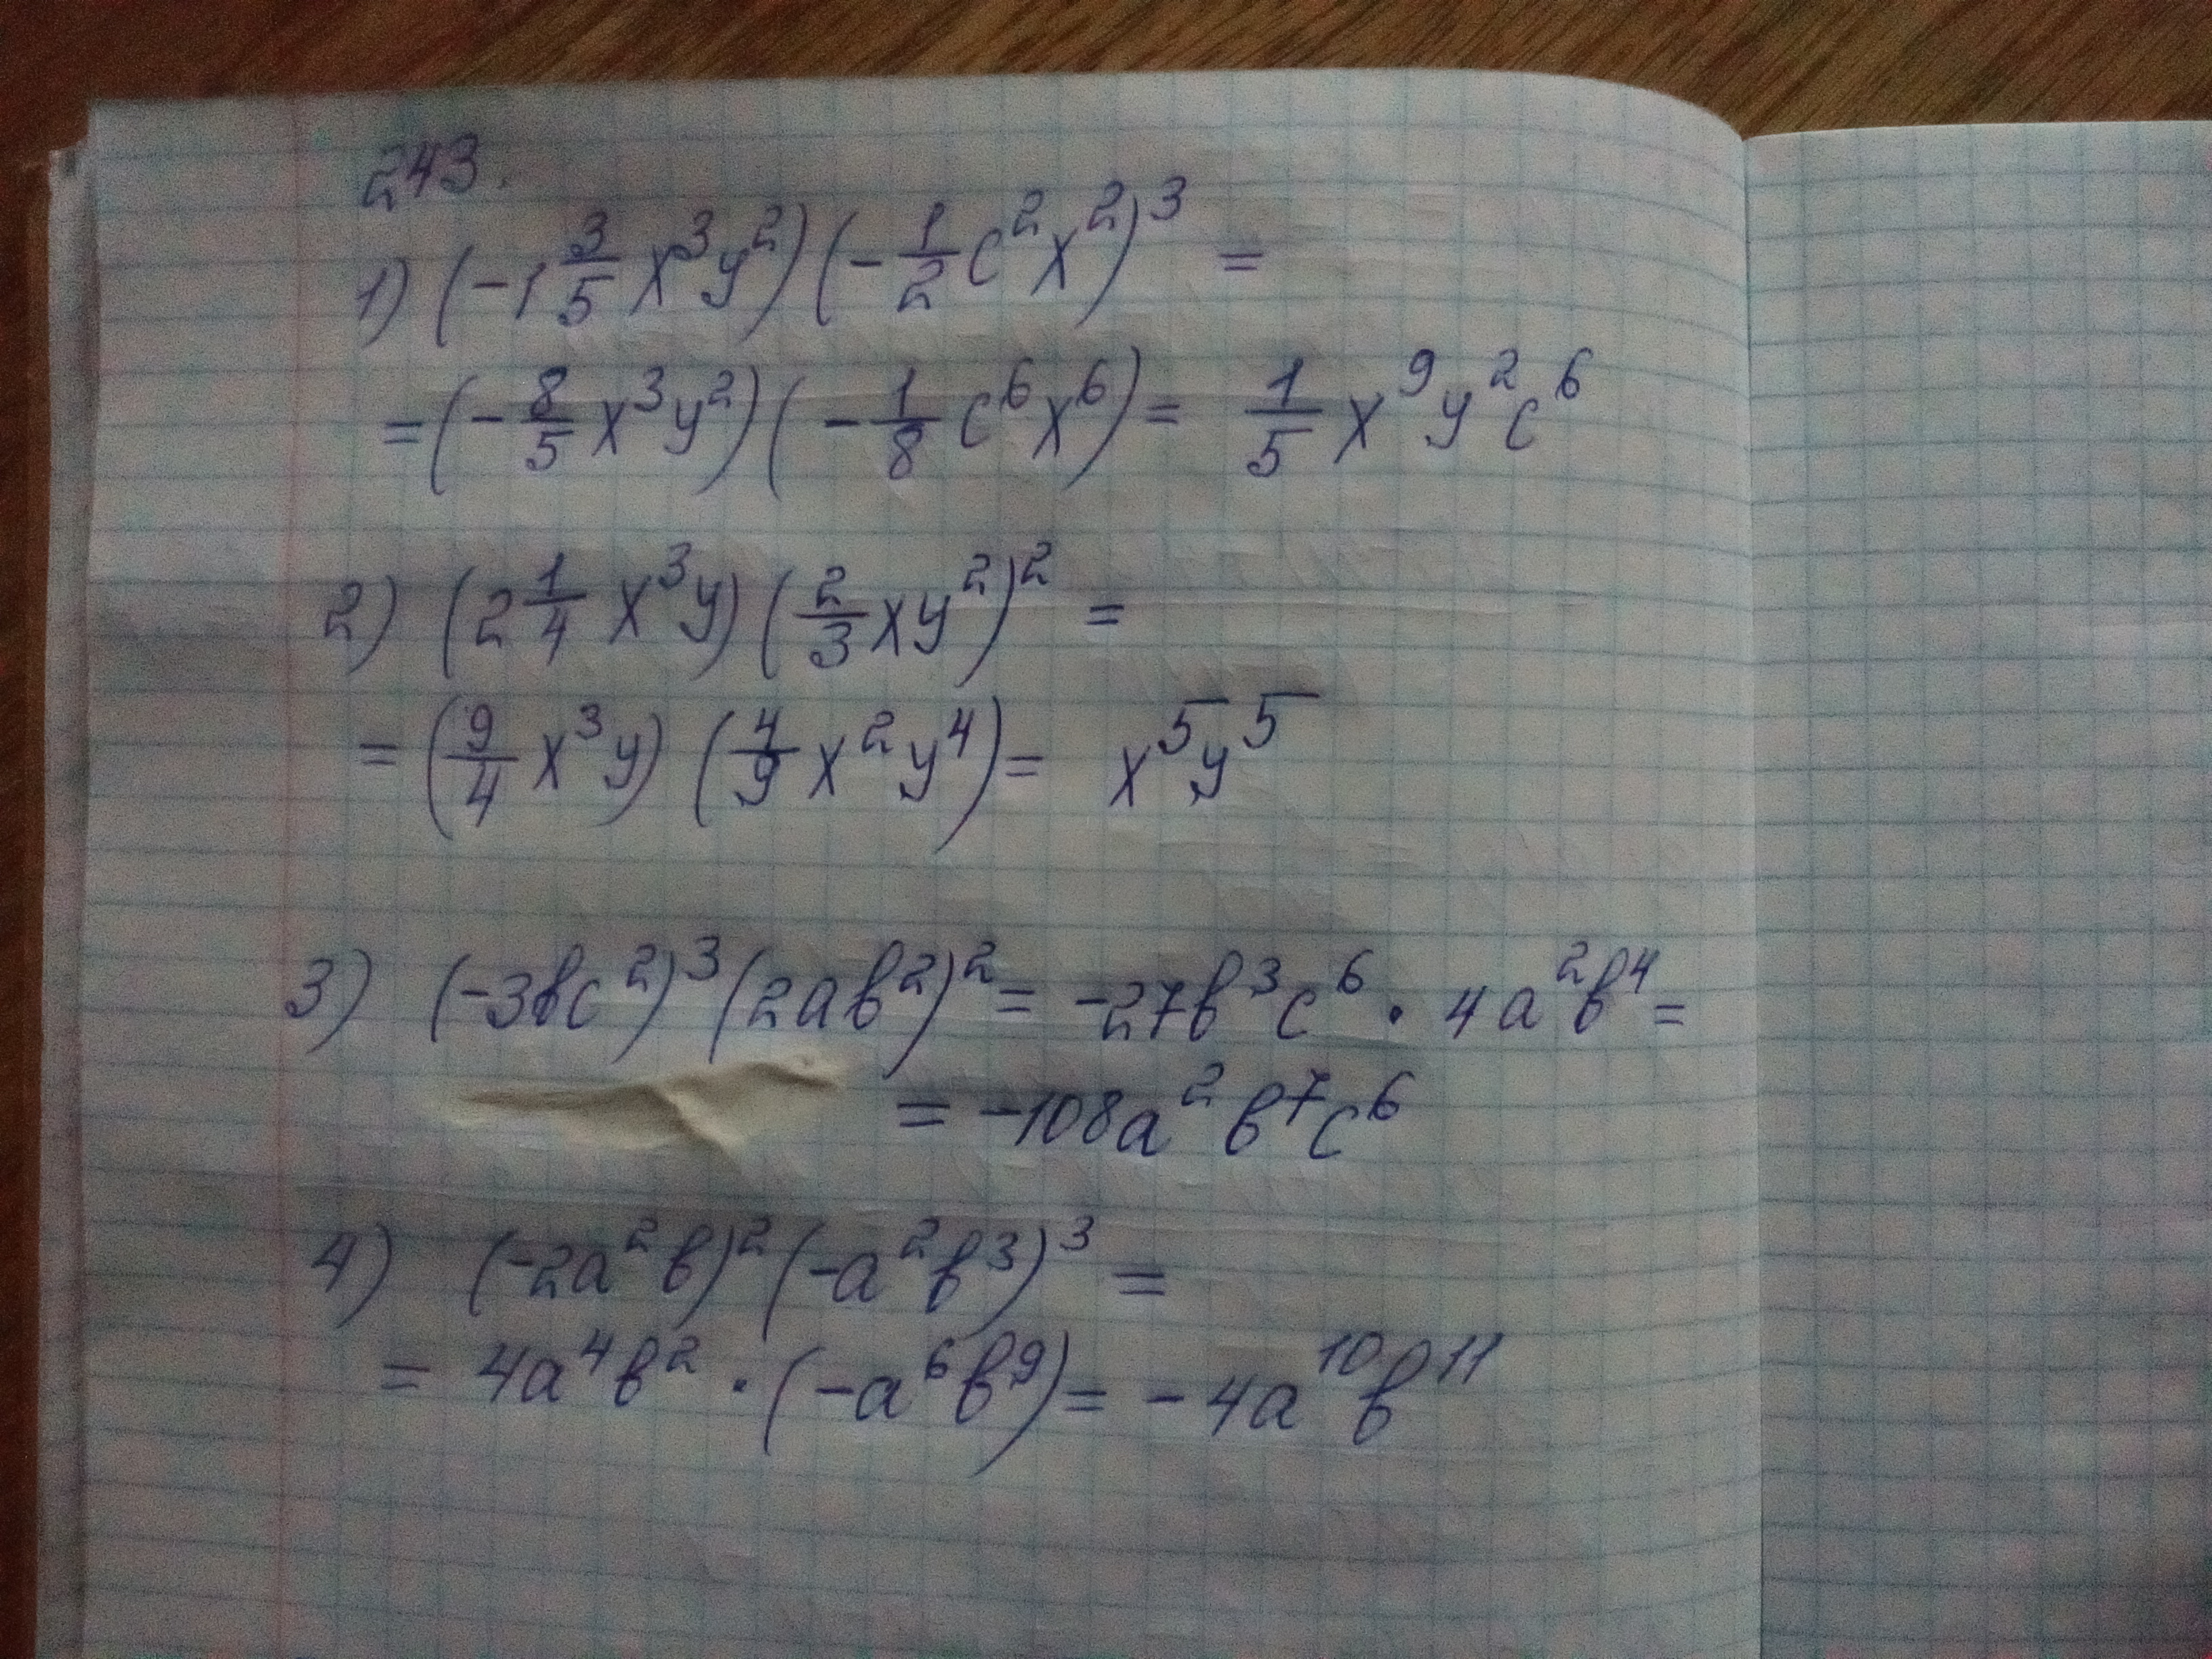 243.
1) (-1 3/5 x³y²)(-1/2 c²x²)³ =
= (-8/5 x³y²)(-1/8 c⁶x⁶) = 1/5 x⁹y²c⁶
2) (2 1/4 x³y)(2/3 xy²)² =
= (9/4 x³y)(4/9 x²y⁴) = x⁵y⁵
3) (-3вc²)³(2aв²)² = -27в³c⁶ · 4a²в⁴ =
= -108a²в⁷c⁶
4) (-2a²в)²(-a²в³)³ =
= 4a⁴в² · (-a⁶в⁹) = -4a¹⁰в¹¹